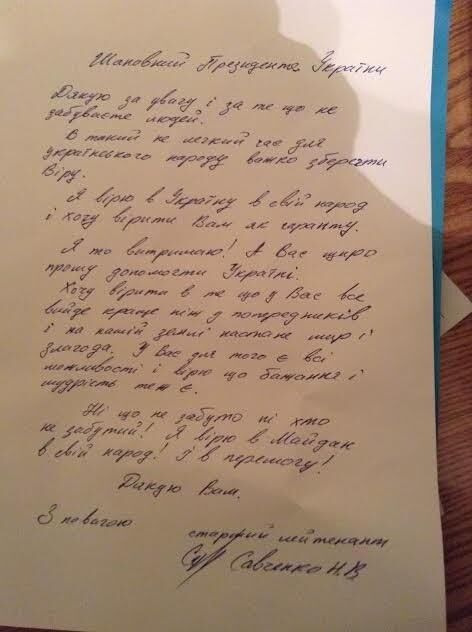 Шановний Президенте України
Дякую за увагу і за те що не
забуваєте людей.
В такий не легкий час для
українського народу важко зберегти
Віру.
Я вірю в Україну в свій народ
і хочу вірити Вам як гаранту.
Я то витримаю! А Вас щиро
прошу допомогти Україні.
Хочу вірити в те що у Вас все
вийде краще ніж у попередників
і на нашій землі настане мир і
злагода. У Вас для того є всі
можливості і вірю що бажання і
мудрість теж є.
Ні що не забуто ні хто
не забутий! Я вірю в Майдан
в свій народ! І в перемогу!
Дякую Вам.
З повагою
старший лейтенант
Савченко Н.В